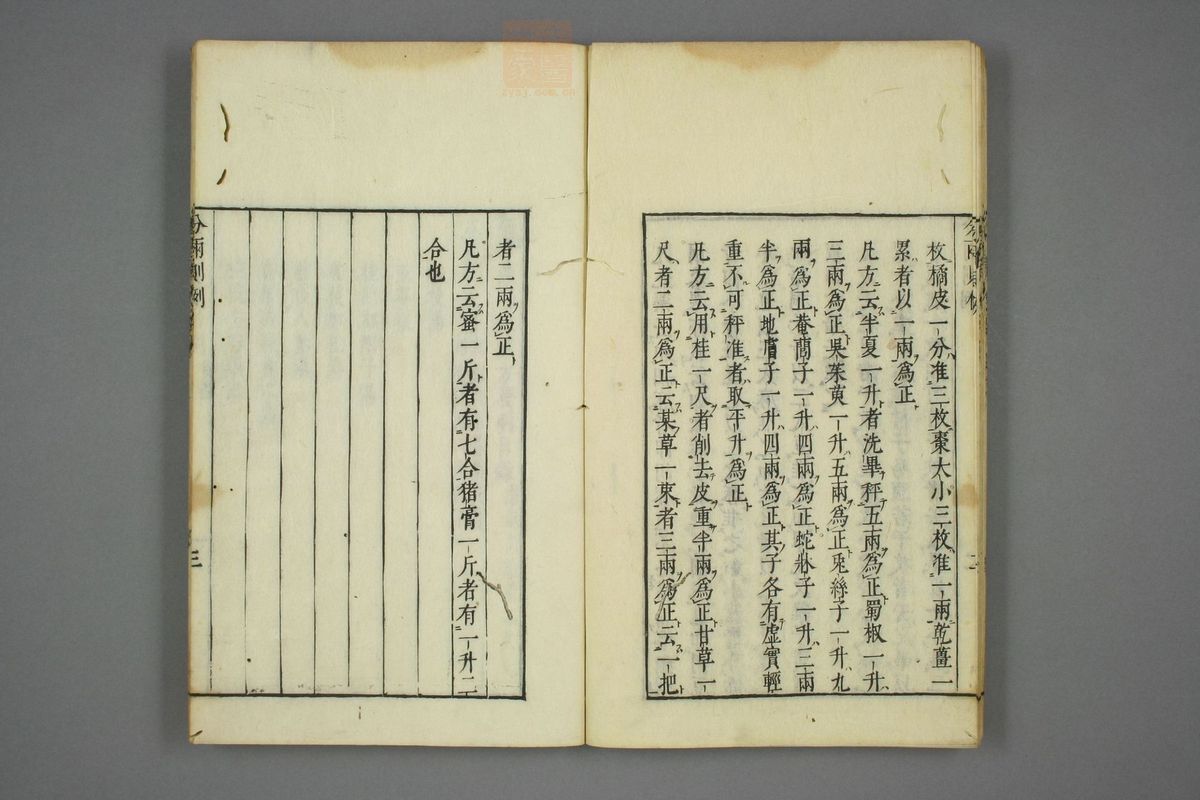 枚橘皮一分准三枚棗大小三枚准一兩乾薑一
累者以一兩爲正
凡方云半夏一升者洗畢秤五兩爲正蜀椒一升
三兩爲正吳茱萸一升五兩爲正兎絲子一升九
兩爲正菴䕡子一升四兩爲正蛇牀子一升三兩
半爲正地膚子一升四兩爲正其子各有虛實輕
重不可秤准者取平升爲正
凡方云用桂一尺者削去皮重半兩爲正甘草一
尺者二兩爲正云某草一束者三兩爲正云一把
者二兩爲正
凡方云蜜一斤者有七合猪膏一斤者有一升二
合也
分兩則例
三